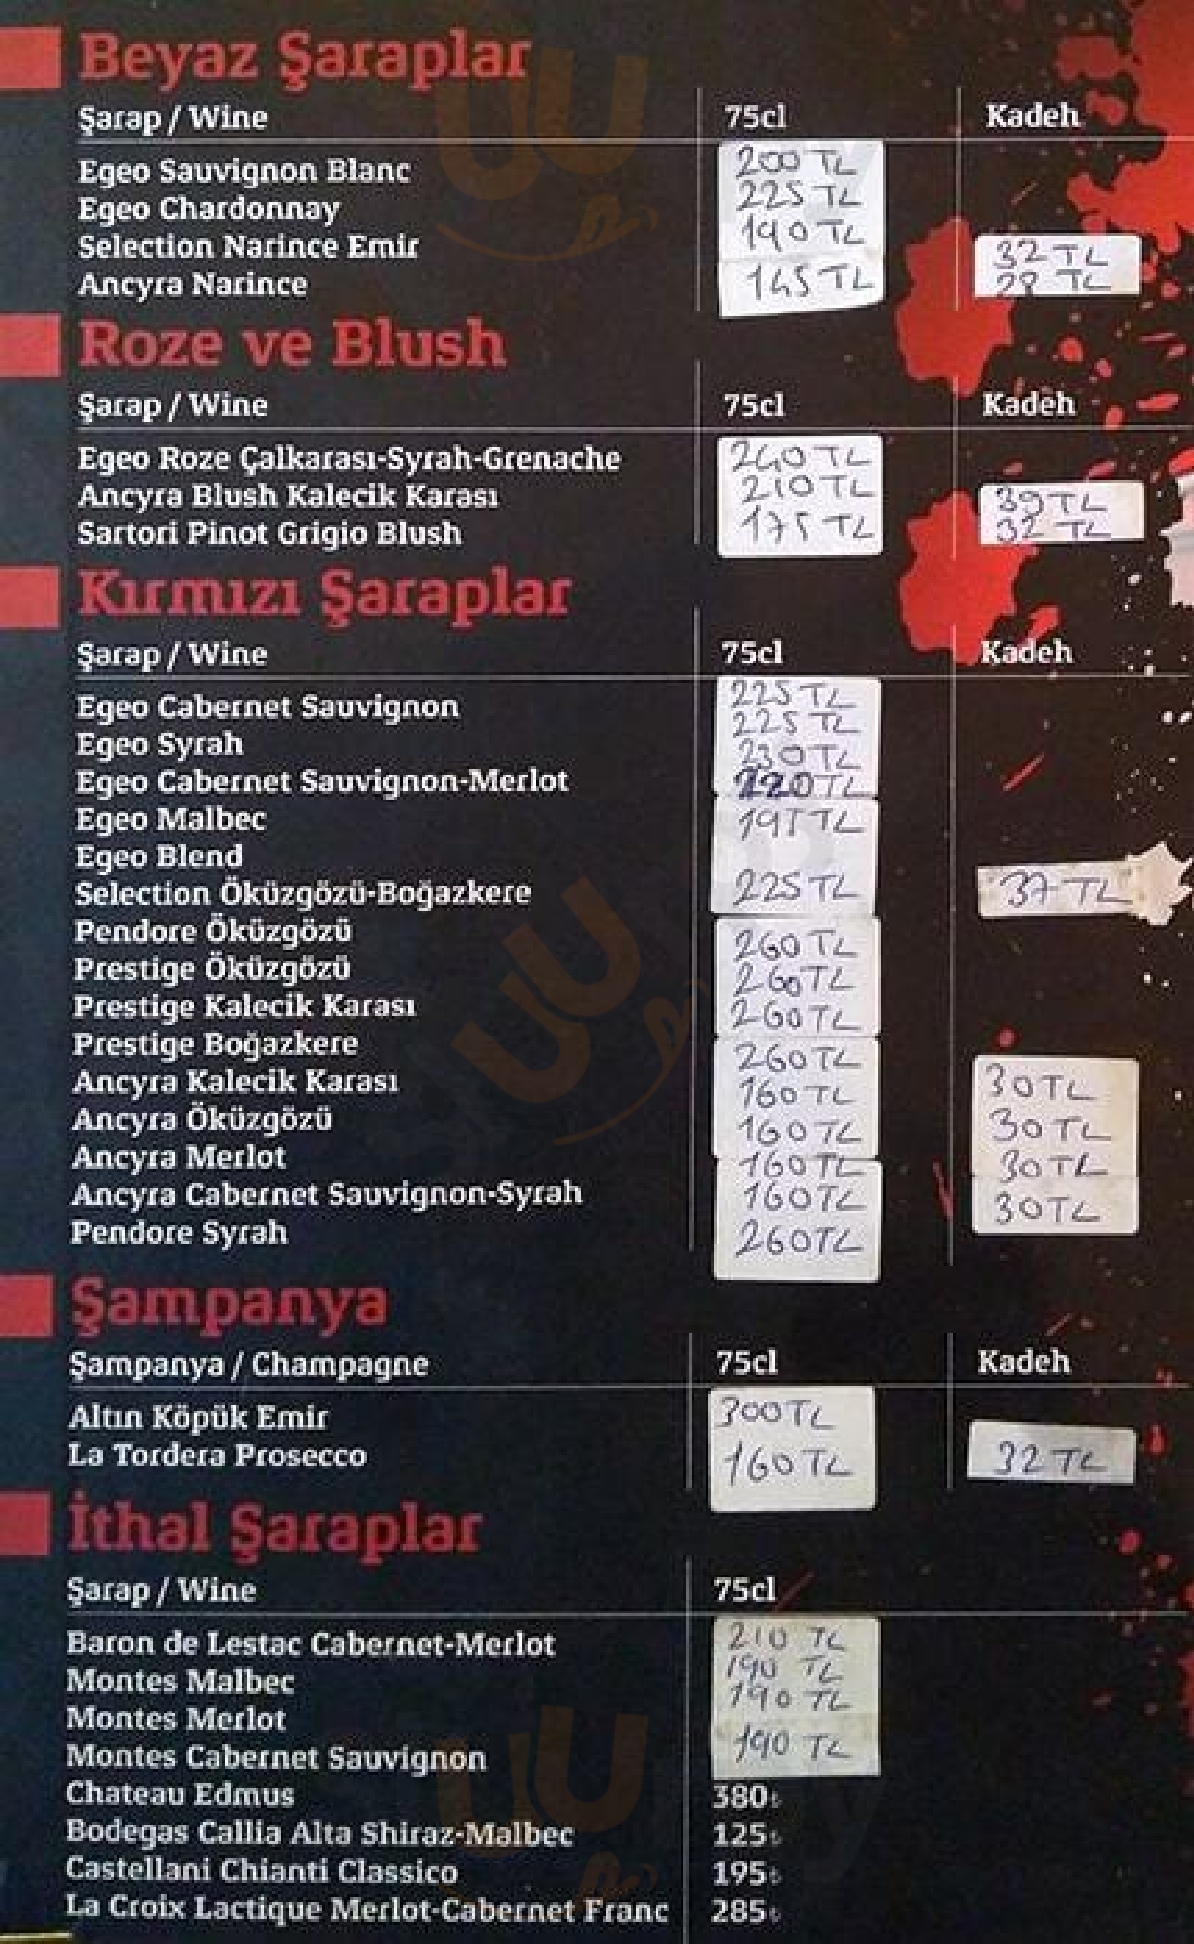 Beyaz Şaraplar
Şarap / Wine 75cl Kadeh
Egeo Sauvignon Blanc 200 TL
Egeo Chardonnay 225 TL
Selection Narince Emir 190 TL 32 TL
Ancyra Narince 145 TL 28 TL
Roze ve Blush
Şarap / Wine 75cl Kadeh
Egeo Roze Çalkarası-Syrah-Grenache 240 TL
Ancyra Blush Kalecik Karası 210 TL 39 TL
Sartori Pinot Grigio Blush 175 TL 32 TL
Kırmızı Şaraplar
Şarap / Wine 75cl Kadeh
Egeo Cabernet Sauvignon 225 TL
Egeo Syrah 225 TL
Egeo Cabernet Sauvignon-Merlot 230 TL
Egeo Malbec 220 TL
Egeo Blend 195 TL
Selection Öküzgözü-Boğazkere 225 TL 37 TL
Pendore Öküzgözü 260 TL
Prestige Öküzgözü 260 TL
Prestige Kalecik Karası 260 TL
Prestige Boğazkere 260 TL
Ancyra Kalecik Karası 160 TL 30 TL
Ancyra Öküzgözü 160 TL 30 TL
Ancyra Merlot 160 TL 30 TL
Ancyra Cabernet Sauvignon-Syrah 160 TL 30 TL
Pendore Syrah 260 TL
Şampanya
Şampanya / Champagne 75cl Kadeh
Altın Köpük Emir 300 TL
La Tordera Prosecco 160 TL 32 TL
İthal Şaraplar
Şarap / Wine 75cl
Baron de Lestac Cabernet-Merlot 210 TL
Montes Malbec 190 TL
Montes Merlot 190 TL
Montes Cabernet Sauvignon 190 TL
Chateau Edmus 380₺
Bodegas Callia Alta Shiraz-Malbec 125₺
Castellani Chianti Classico 195₺
La Croix Lactique Merlot-Cabernet Franc 285₺